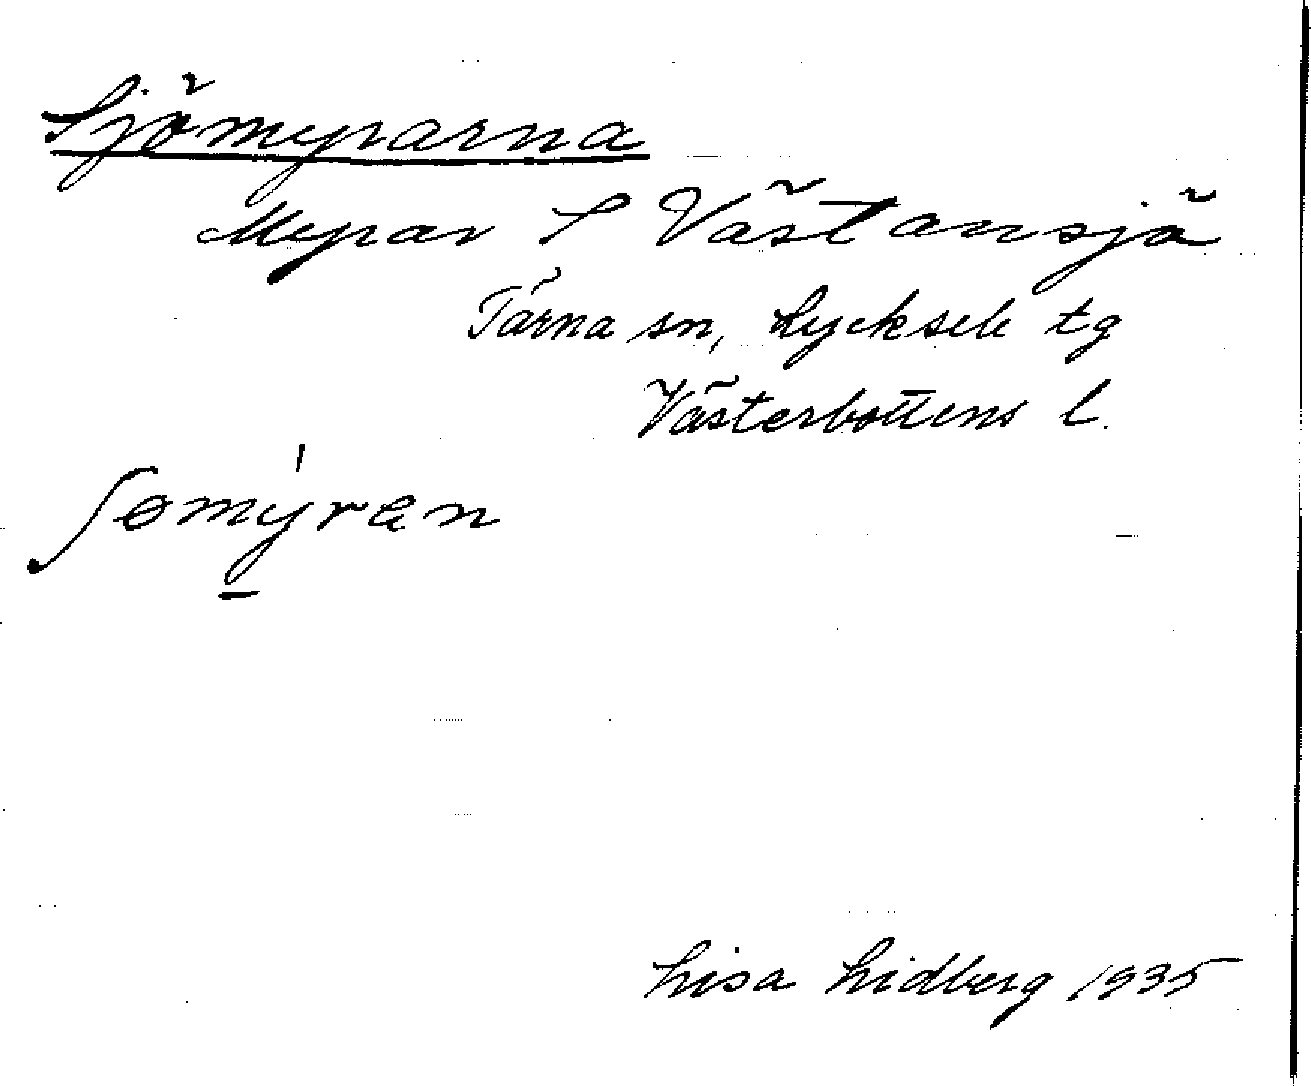 Sjömyrarna
Myrar S Västansjö
Tärna sn, Lycksele tg
Västerbottens l.
ʃømýran
Lisa Lidberg 1935